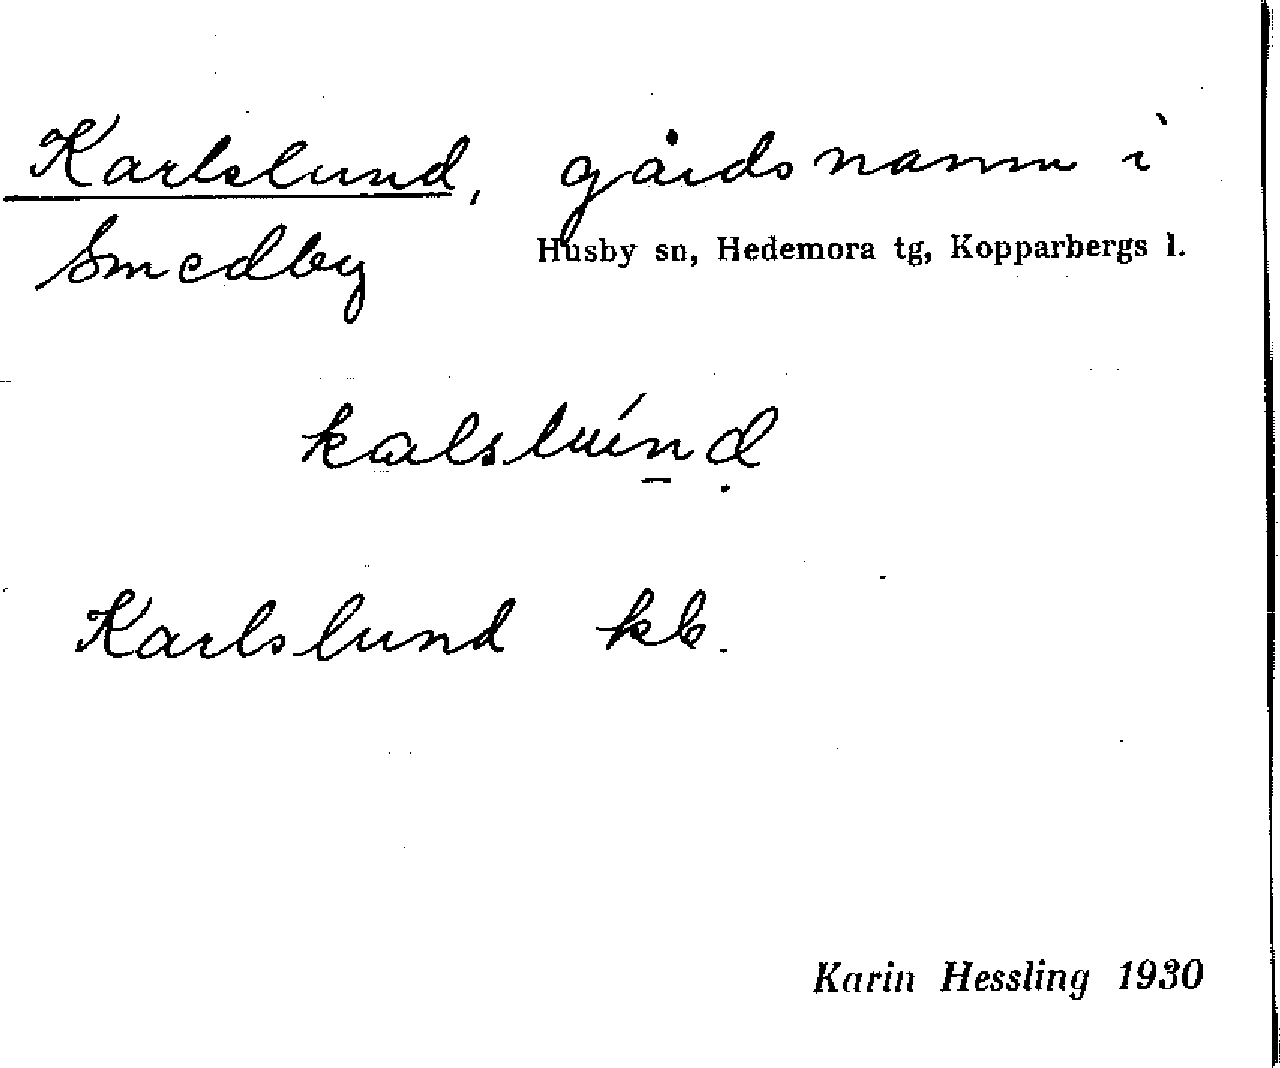 Karlslund, gårdsnamn i
Smedby Husby sn, Hedemora tg, Kopparbergs l.
kalslúnd
Karlslund kb.
Karin Hessling 1930